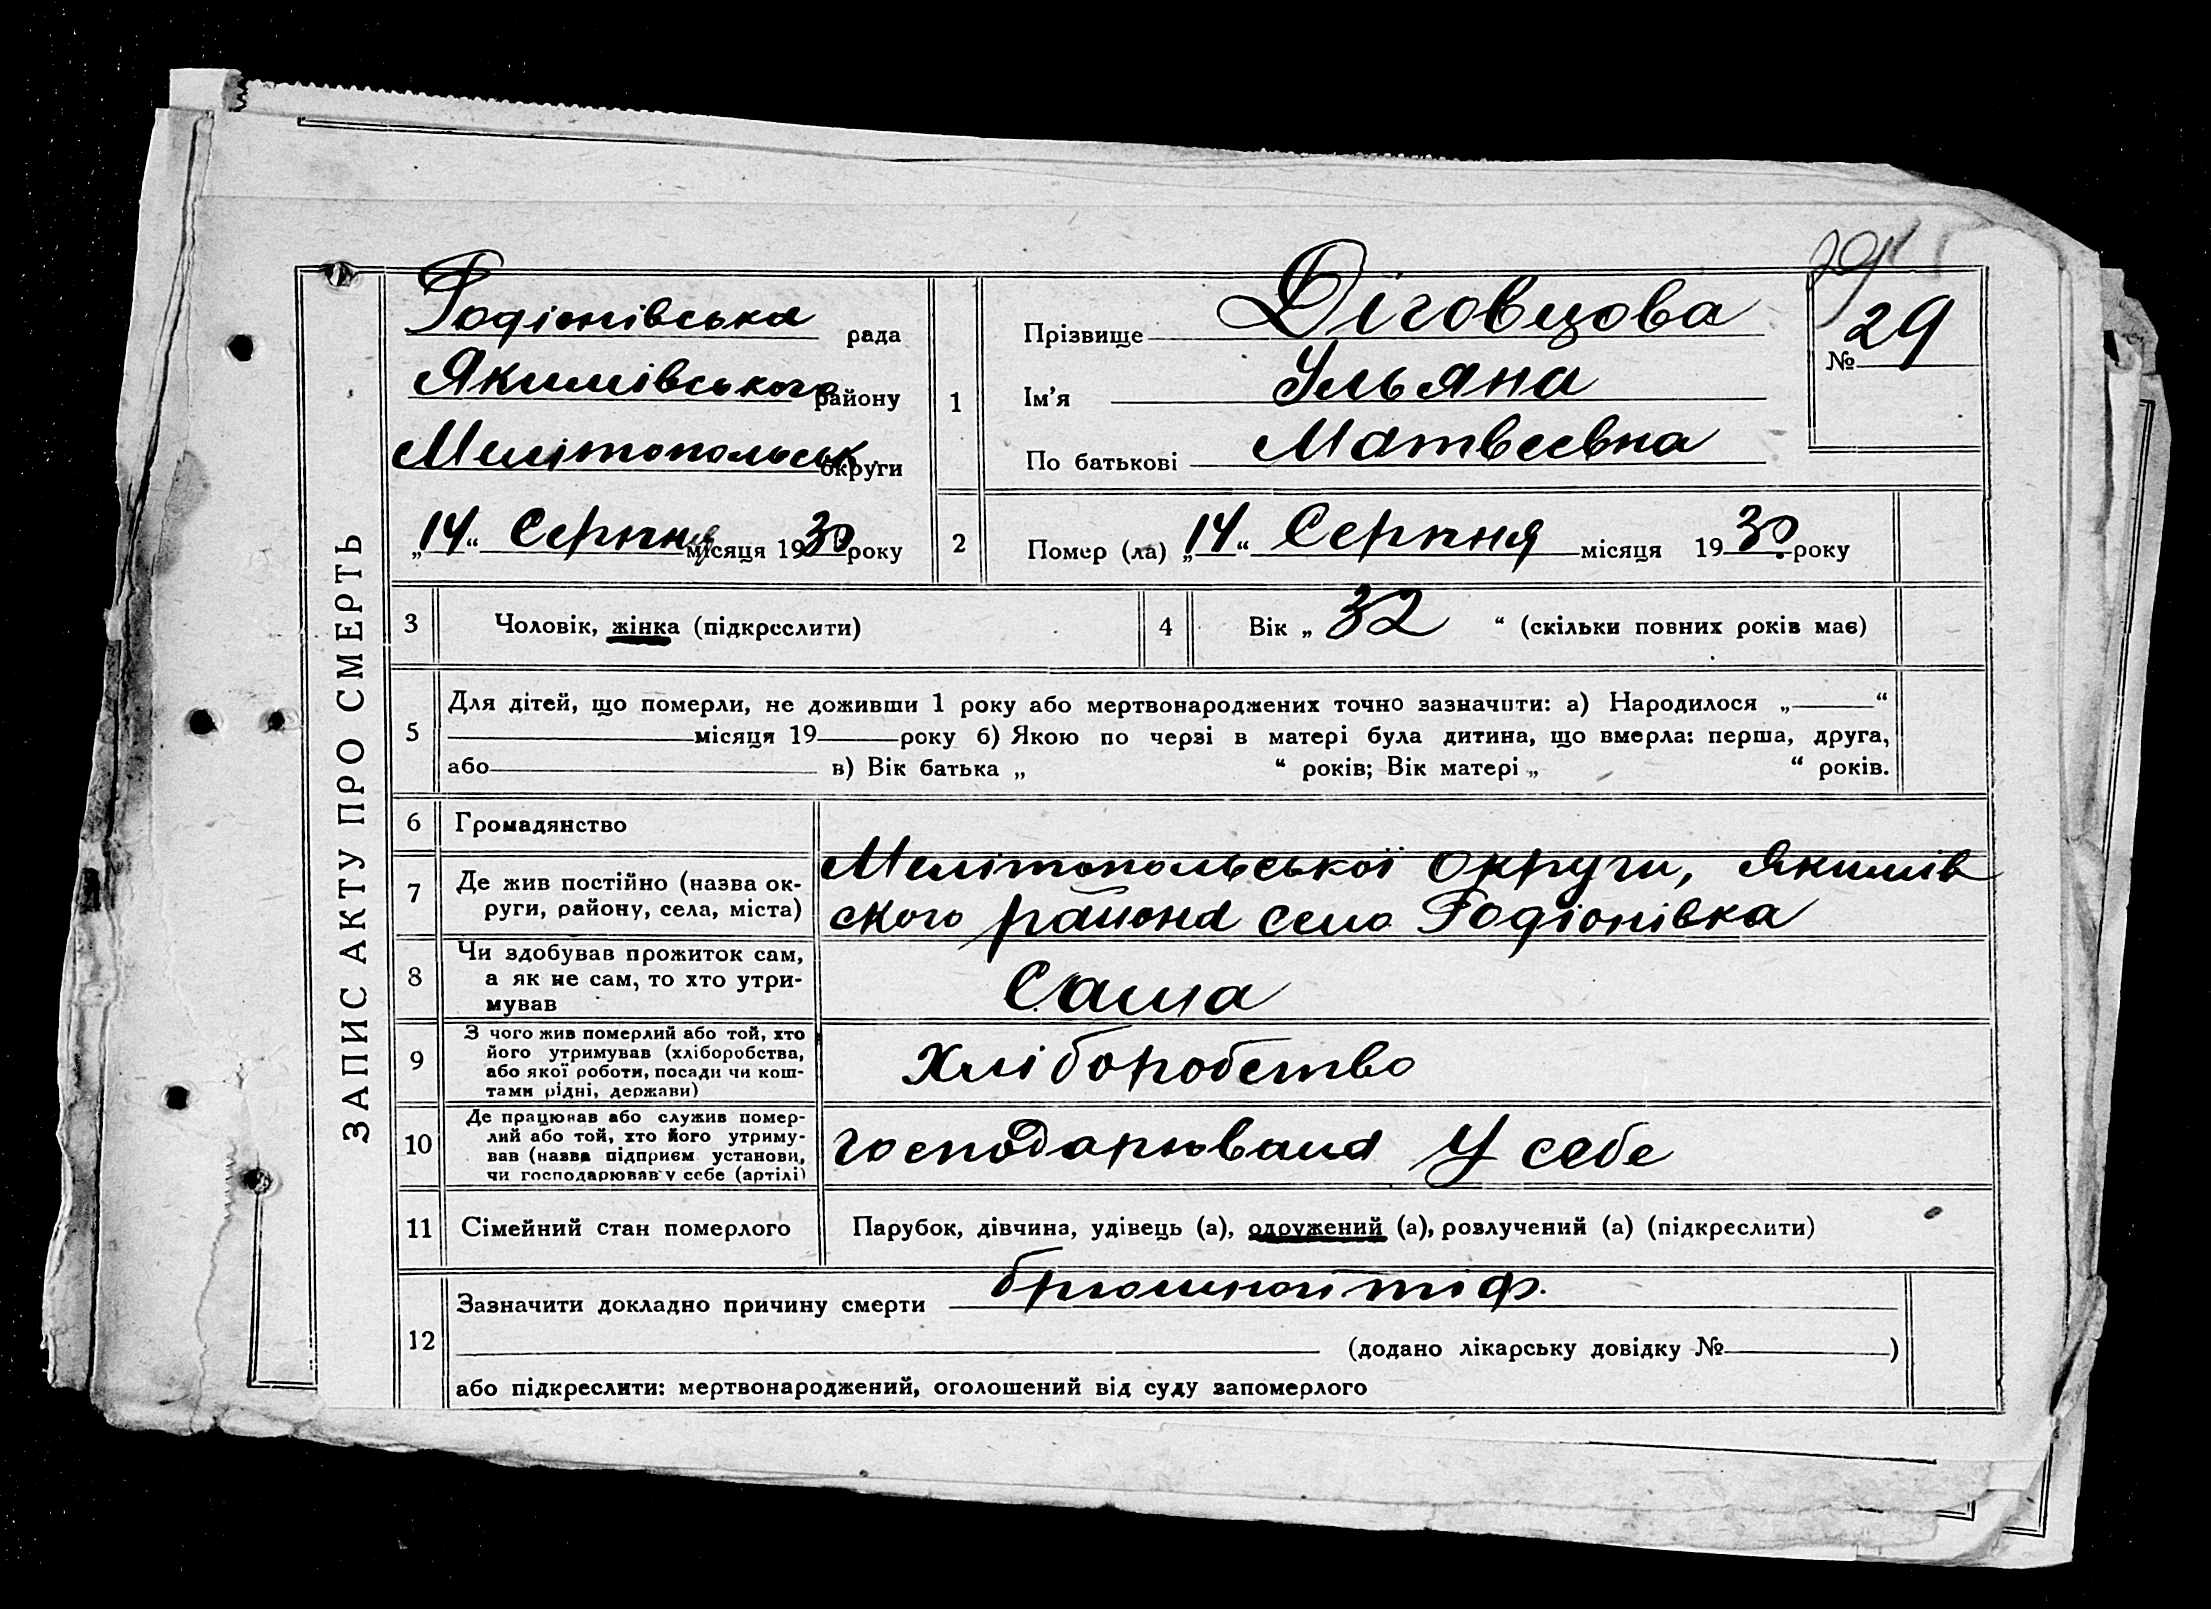 ЗАПИС АКТУ ПРО СМЕРТЬ
Родіонівська рада
Якимівського району
Мелітопольськ. округи
„14“ Серпня місяця 1930 року
1
Прізвище Діговцова
Ім'я Ульяна
По батькові Матвеевна
№ 29
2
Помер (ла) „14“ Серпня місяця 1930 року
3 Чоловік, жінка (підкреслити)
4 Вік „32“ (скільки повних років має)
5
Для дітей, що померли, не доживши 1 року або мертвонароджених точно зазначити: а) Народилося „ “
місяця 19 року б) Якою по черзі в матері була дитина, що вмерла: перша, друга,
або в) Вік батька „ “ років; Вік матері „ “ років.
6 Громадянство
7 Де жив постійно (назва ок-
руги, району, села, міста)
Мелітопольської округи, Якимів
ского района село Родіонівка
8 Чи здобував прожиток сам,
а як не сам, то хто утри-
мував
Сама
9 З чого жив померлий або той, хто
його утримував (хліборобства,
або якої роботи, посади чи кош-
тами рідні, держави)
Хліборобство
10 Де працював або служив помер-
лий або той, хто його утриму-
вав (назва підприєм. установи,
чи господарював у себе (артілі)
господарювала У себе
11 Сімейний стан померлого
Парубок, дівчина, удівець (а), одружений (а), розлучений (а) (підкреслити)
12
Зазначити докладно причину смерти брюшной тіф.
(додано лікарську довідку № )
або підкреслити: мертвонароджений, оголошений від суду запомерлого